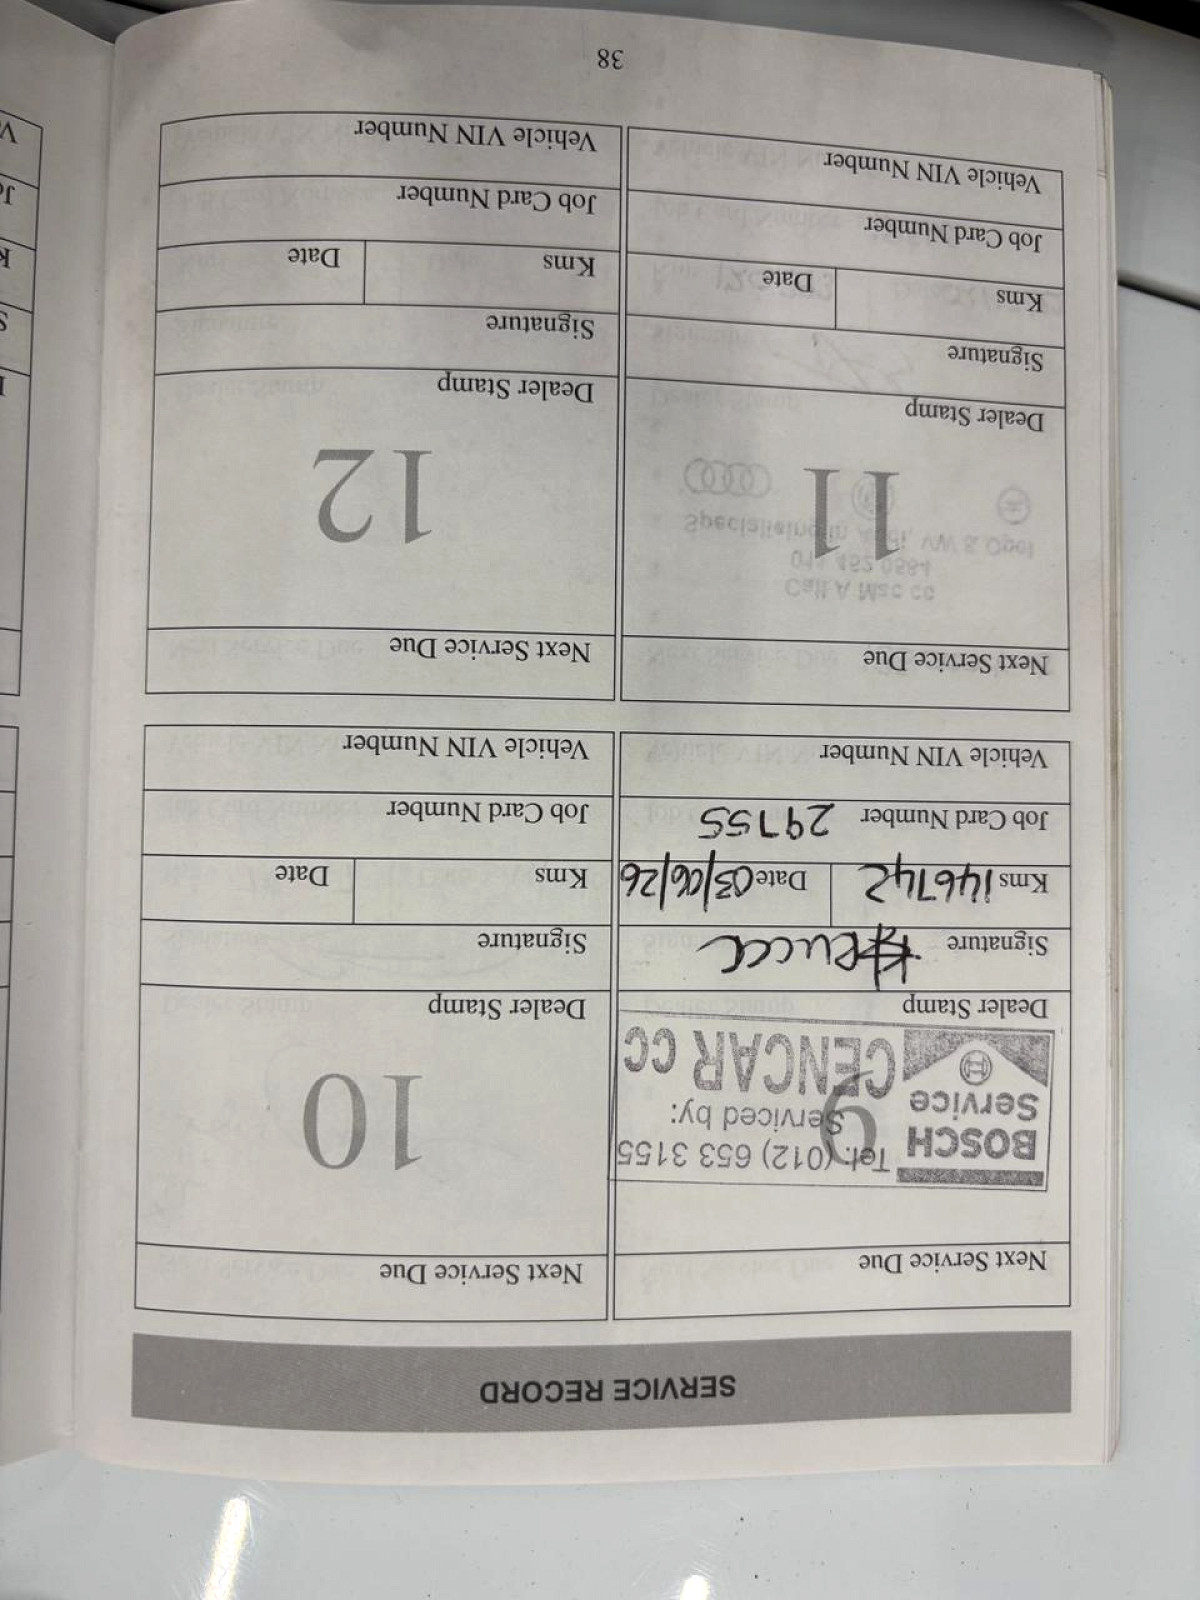 SERVICE RECORD
Next Service Due
BOSCH
Service
Tel: (012) 653 3155
Serviced by:
CENCAR CC
9
Dealer Stamp
Signature
Kms 146742 Date 03/06/26
Job Card Number 29755
Vehicle VIN Number
Next Service Due
10
Dealer Stamp
Signature
Kms Date
Job Card Number
Vehicle VIN Number
Next Service Due
11
Dealer Stamp
Signature
Kms Date
Job Card Number
Vehicle VIN Number
Next Service Due
12
Dealer Stamp
Signature
Kms Date
Job Card Number
Vehicle VIN Number
38